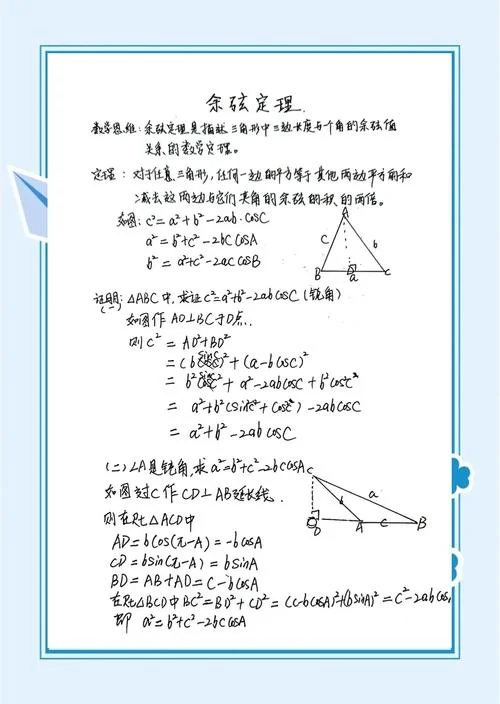 余弦定理.
数学思维:余弦定理是描述三角形中三边长度与一个角的余弦值
关系的数学定理。
定理:对于任意三角形,任何一边的平方等于其他两边平方的和
减去这两边与它们夹角的余弦的积的两倍。
如图:c²=a²+b²-2ab·cosC
a²=b²+c²-2bccosA
b²=a²+c²-2accosB
A
c
b
B
D
a
C
证明:△ABC中,求证c²=a²+b²-2abcosC(锐角)
(一)
如图作AD⊥BC于D点.
则c²=AD²+BD²
=(bsinC)²+(a-bcosC)²
=b²sin²C+a²-2abcosC+b²cos²C
=a²+b²(sin²C+cos²C)-2abcosC
=a²+b²-2abcosC
(二)∠A是钝角,求a²=b²+c²-2bccosA
如图过C作CD⊥AB延长线.
则在Rt△ACD中
C
b
a
D
A
c
B
AD=bcos(π-A)=-bcosA
CD=bsin(π-A)=bsinA
BD=AB+AD=c-bcosA
在Rt△BCD中BC²=BD²+CD²=(c-bcosA)²+(bsinA)²=c²-2abcos
即 a²=b²+c²-2bccosA